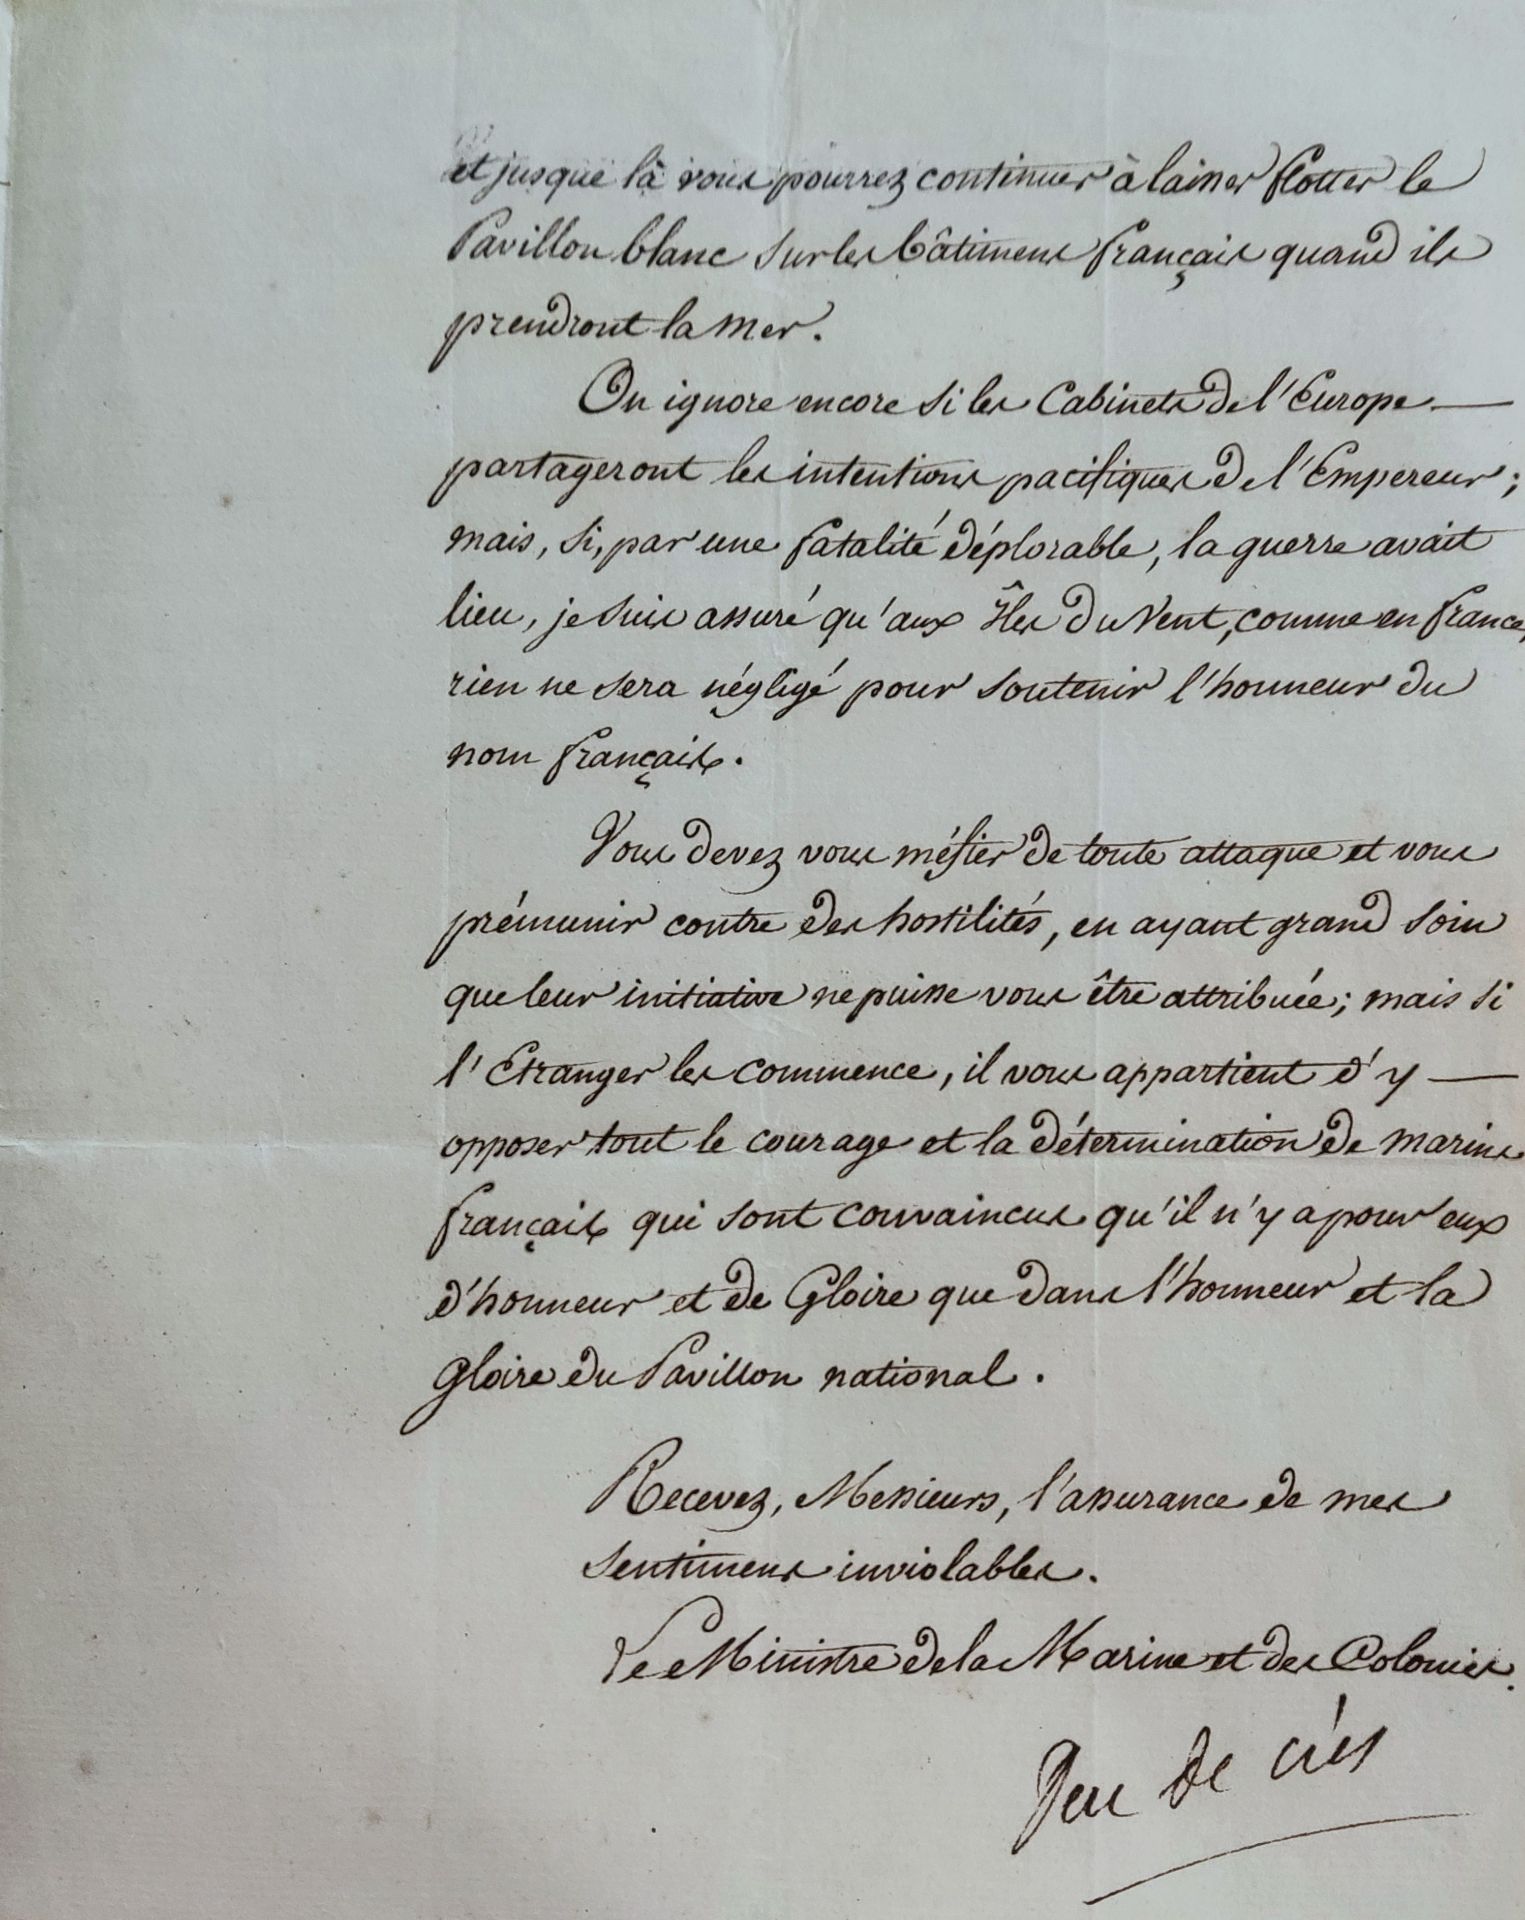 et jusque là vous pourrez continuer à laisser flotter le
Pavillon blanc sur les bâtimens français quand ils
prendront la mer.
On ignore encore si les Cabinets de l'Europe —
partageront les intentions pacifiques de l'Empereur;
mais, si, par une fatalité déplorable, la guerre avait
lieu, je suis assuré qu'aux Îles du Vent, comme en france,
rien ne sera négligé pour soutenir l'honneur du
nom français.
Vous devez vous méfier de toute attaque et vous
prémunir contre des hostilités, en ayant grand soin
que leur initiative ne puisse vous être attribuée; mais si
l'Etranger les commence, il vous appartient d'y —
opposer tout le courage et la détermination de marins
français qui sont convaincus qu'il n'y a pour eux
d'honneur et de Gloire que dans l'honneur et la
gloire du Pavillon national.
Recevez, Messieurs, l'assurance de mes
sentimens inviolables.
Le Ministre de la Marine et des Colonies.
Duc de crès